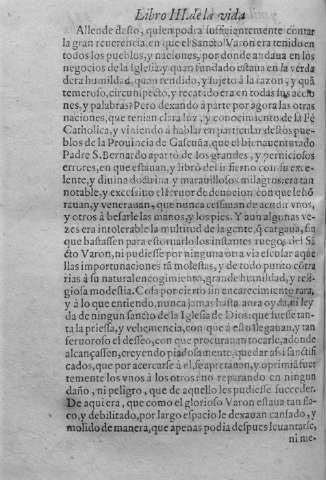 Libro III. de la vida
Allende desto, quien podra sufficientemente contar
la gran reuerencia, en que el Sancto Varon era tenido en
todos los pueblos, y naciones, por donde andaua en los
negocios de la Iglesia, y quan fundado estaua en la verda
dera humildad, quan rendido, y sujeto à la razon, y quã
temeroso, circunspecto, y recatado era en todas sus accio
nes, y palabras? Pero dexando à parte por agora las otras
naciones, que tenian clara luz, y conocimiento de la Fè
Catholica, y viniendo à hablar en particular destos pue-
blos de la Prouincia de Gascuña, que el bienauenturado
Padre S. Bernardo apartò de los grandes, y perniciosos
errores, en que estauan, y librò del infierno con su exce-
lente, y diuina doctrina y marauillosos milagros: era tan
notable, y excessiuo el feruor de deuocion con que le hõ
rauan, y venerauan, que nunca cessauan de acudir vnos,
y otros à besarle las manos, y los pies. Y aun algunas ve-
zes era intolerable la multitud de la gente, q̃ cargaua, sin
que bastassen para estornarlo los instantes ruegos del Sã
cto Varon, ni pudiesse por ninguna otra via escusar aque
llas importunaciones tã molestas, y de todo punto cõtra
rias à su natural encogimiento, grande humildad, y reli-
giosa modestia. Cosa por cierto sin encarecimiento rara,
y à lo que entiendo, nunca jamas hasta aora oyda, ni ley
da de ningun sancto de la Iglesia de Dios: que fuesse tan-
ta la priessa, y vehemencia, con que à esto llegauan, y tan
feruoroso el desseo, con que procurauan tocarle, adonde
alcançassen, creyendo piadosamente, quedar assi sanctifi
cados, que por acercarse à el, se apretauan, y oprimiã fuer
temente los vnos à los otros: no reparando en ningun
daño, ni peligro, que de aquello les pudiesse succeder.
De aqui era, que como el glorioso Varon estaua tan fla-
co, y debilitado, por largo espacio le dexauan cansado, y
molido de manera, que apenas podia despues leuantarse,
ni me-